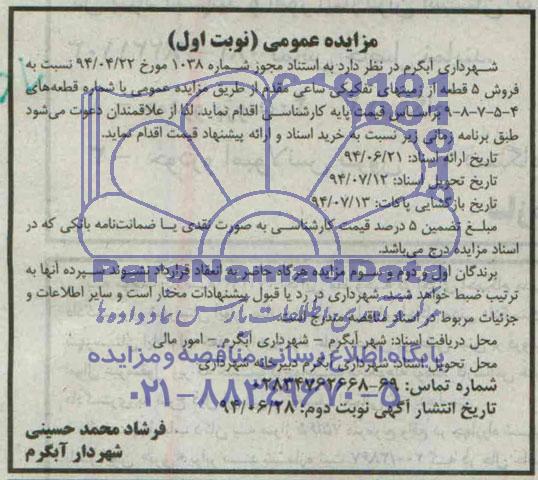 مزایده عمومی (نوبت اول)
شهرداری آبگرم در نظر دارد به استناد مجوز شماره ۱۰۳۸ مورخ ۹۴/۰۴/۲۲ نسبت به
فروش ۵ قطعه از زمینهای تفکیکی ساعی مقدم از طریق مزایده عمومی با شماره قطعه‌های
۴-۵-۷-۸-۹ براساس قیمت پایه کارشناسی اقدام نماید. لذا از علاقمندان دعوت می‌شود
طبق برنامه زمانی زیر نسبت به خرید اسناد و ارائه پیشنهاد قیمت اقدام نماید.
تاریخ ارائه اسناد: ۹۴/۰۶/۲۱
تاریخ تحویل اسناد: ۹۴/۰۷/۱۲
تاریخ بازگشایی پاکات: ۹۴/۰۷/۱۳
مبلغ تضمین ۵ درصد قیمت کارشناسی به صورت نقدی یا ضمانت‌نامه بانکی که در
اسناد مزایده درج می‌باشد.
برندگان اول و دوم و سوم مزایده هرگاه حاضر به انعقاد قرارداد نشوند سپرده آنها به
ترتیب ضبط خواهد شد. شهرداری در رد یا قبول پیشنهادات مختار است و سایر اطلاعات و
جزئیات مربوط در اسناد مناقصه مندرج است.
محل دریافت اسناد: شهر آبگرم - شهرداری آبگرم - امور مالی
محل تحویل اسناد: شهرداری آبگرم دبیرخانه شهرداری
شماره تماس: ۶۹-۰۲۸۳۴۷۶۲۶۶۸
تاریخ انتشار آگهی نوبت دوم: ۹۴/۰۶/۲۸
فرشاد محمد حسینی
شهردار آبگرم
ParsNamadData
مرکز فرآوری اطلاعات پارس نماد داده ها
پایگاه اطلاع رسانی مناقصه و مزایده
۰۲۱-۸۸۳۴۹۶۷۰-۵